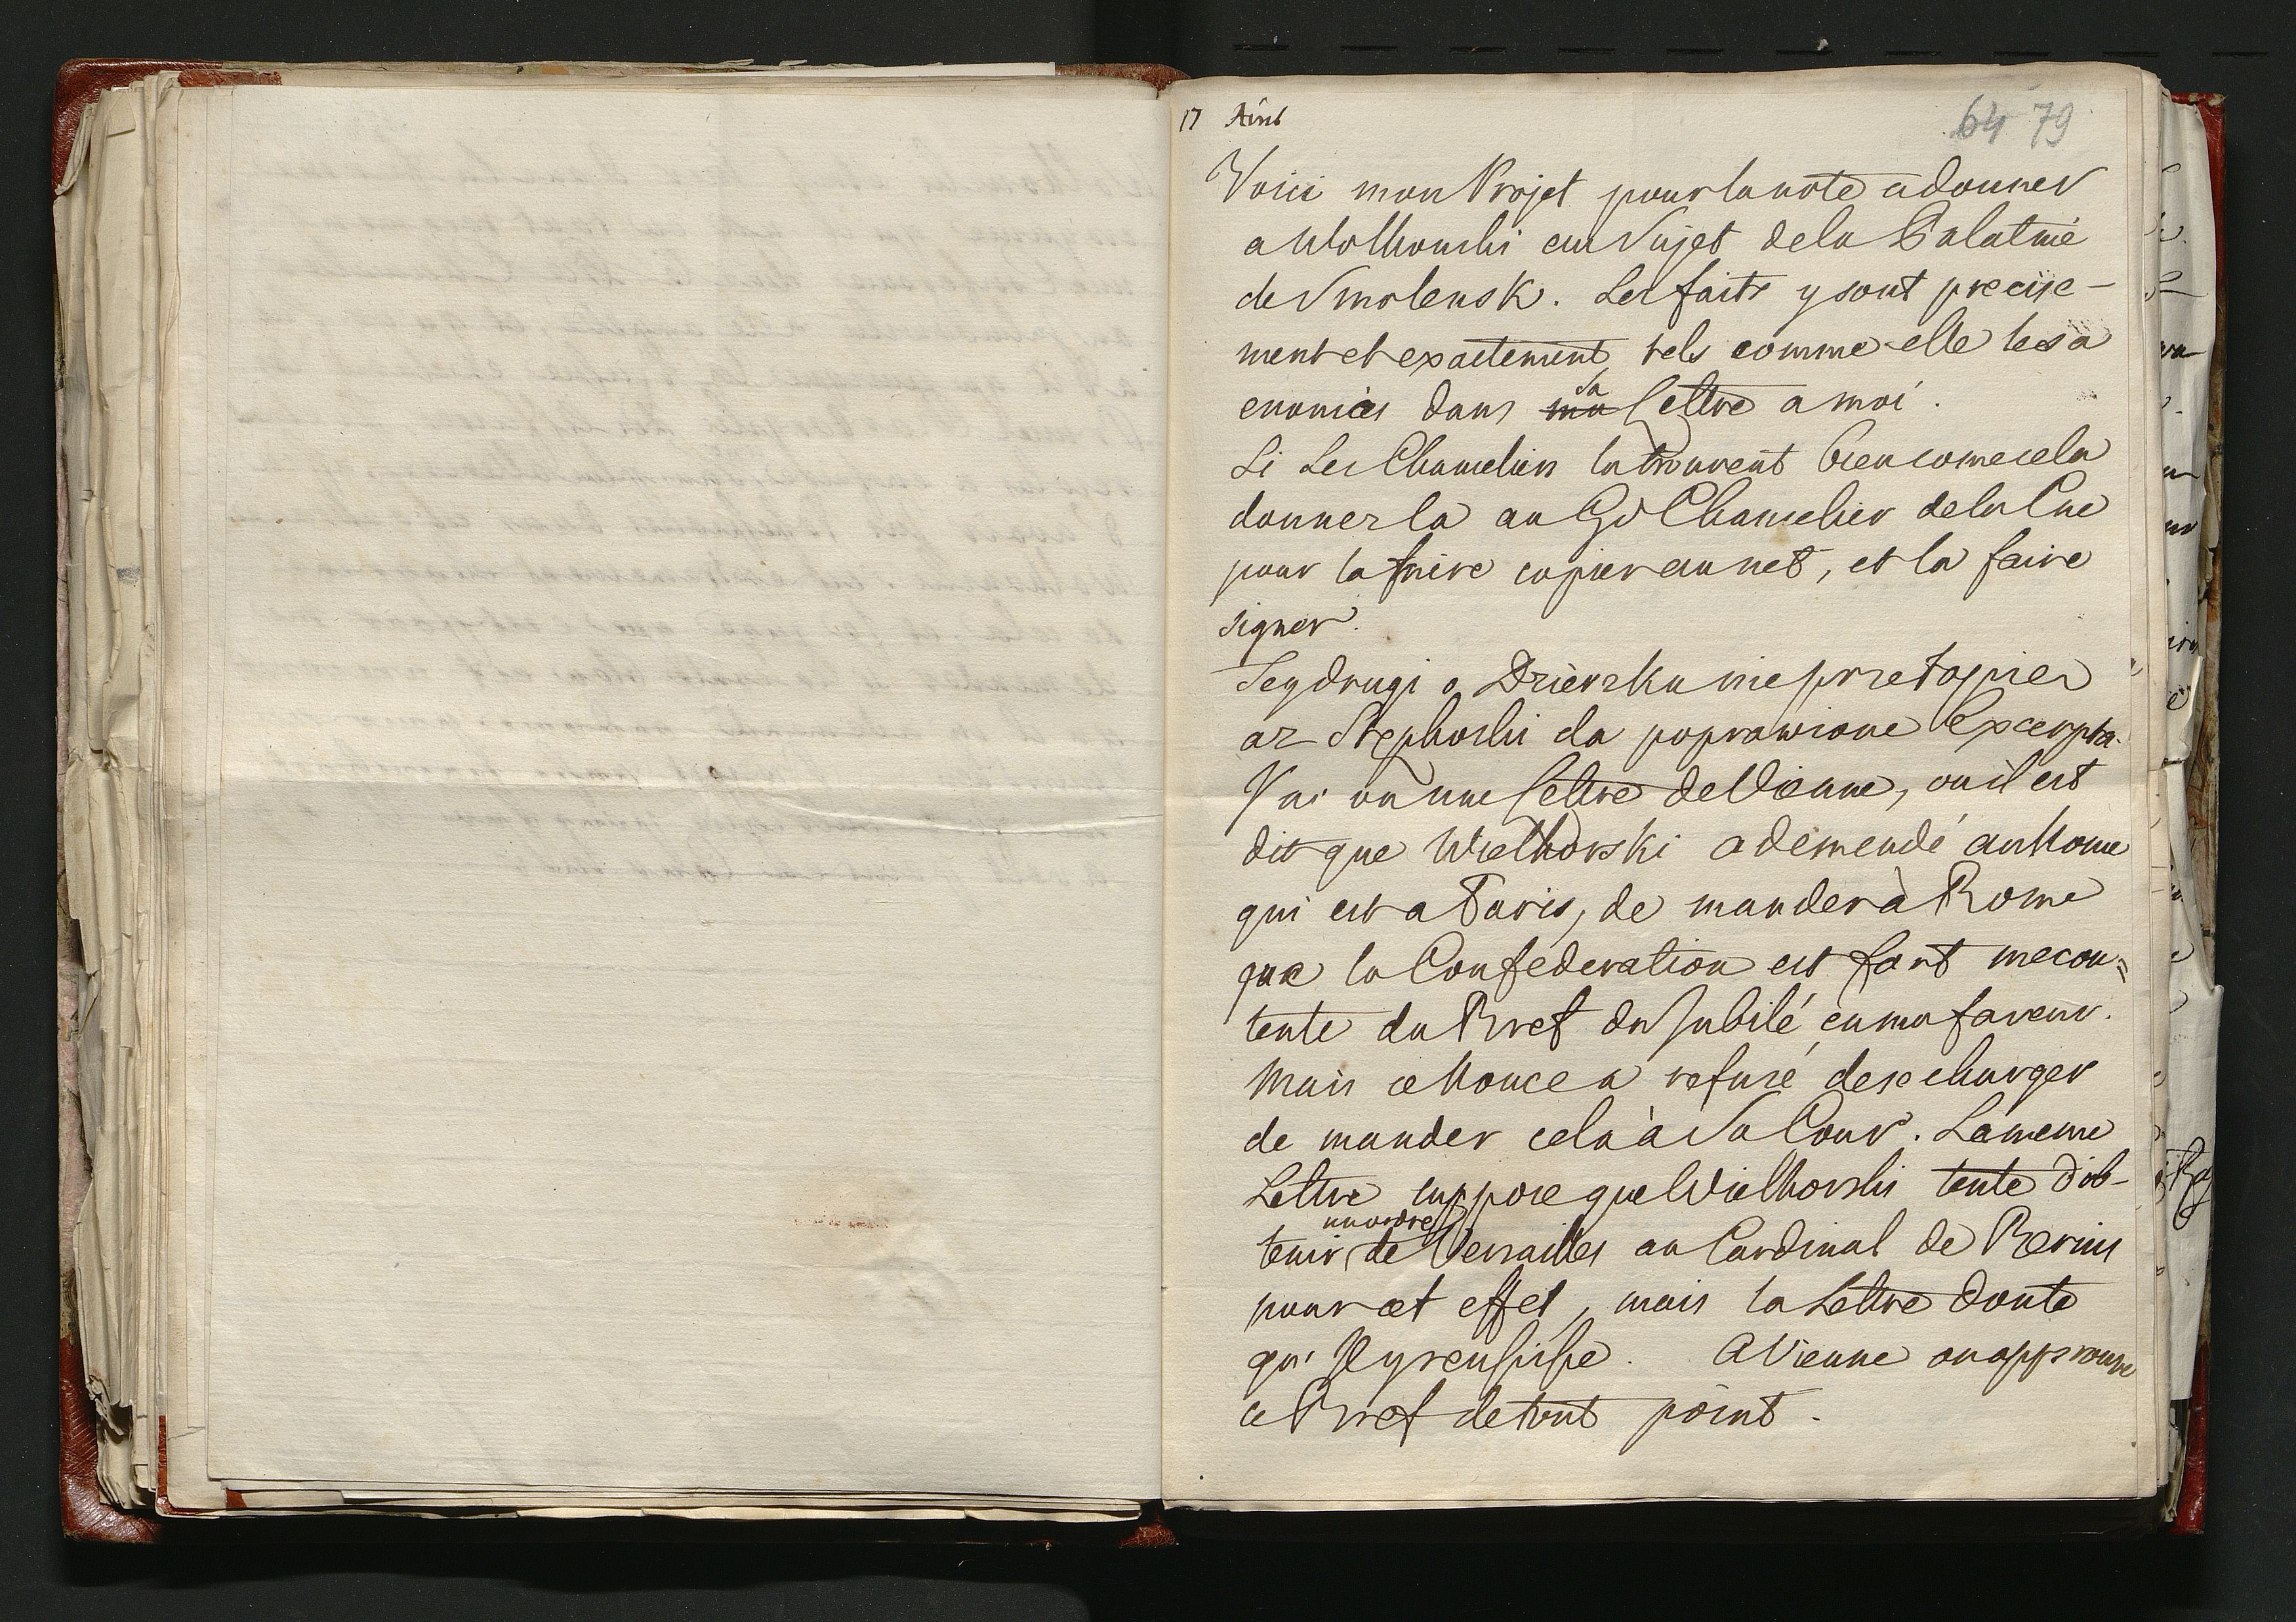 17 Aout
64 79
Voici mon Projet pour la note a donner
a Wolkonski au Sujet de la Palatnie
de Smolensk. Les faits y sont precise-
ment et exactement, tels comme elle les a
enoncés dans ma sa Lettre a moi.
Si Les Chanceliers la trouvent bien come cela
donnez la au Gd Chancelier de la Cne
pour la faire copier au net, et la faire
signer.
Tey drugi o nie przetapies
az Stephoski da poprawione Excerpta.
J'ai vu une Lettre de Vienne, ou il est
dit que Wielhorski a demendé au Nonce
qui est a Paris, de mander à Rome
que la Confederation est fort mecon=
tente du Bref du Jubilé en ma faveur.
Mais ce Nonce a refusé de se charger
de mander cela à Sa Cour. La meme
Lettre suppose que Wielhorski tente d'ob-
tenir un ordre de Versailles au Cardinal de Bernis
pour cet effet, mais la Lettre doute
qu'Il y reussisse. A Vienne on approuve
ce Bref de tout point.